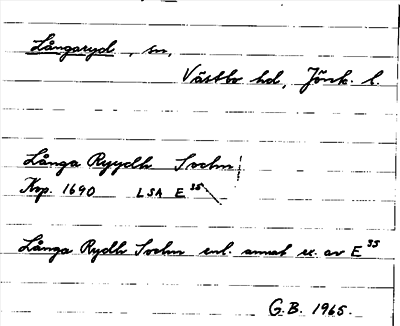 Långaryd, sn,
Västbo hd, Jönk. l.
Långa Ryydh Sochn
Krp. 1690 LSA E 35
Långa Rydh Sochn enl. annat ex. av E 35
G.B. 1965.